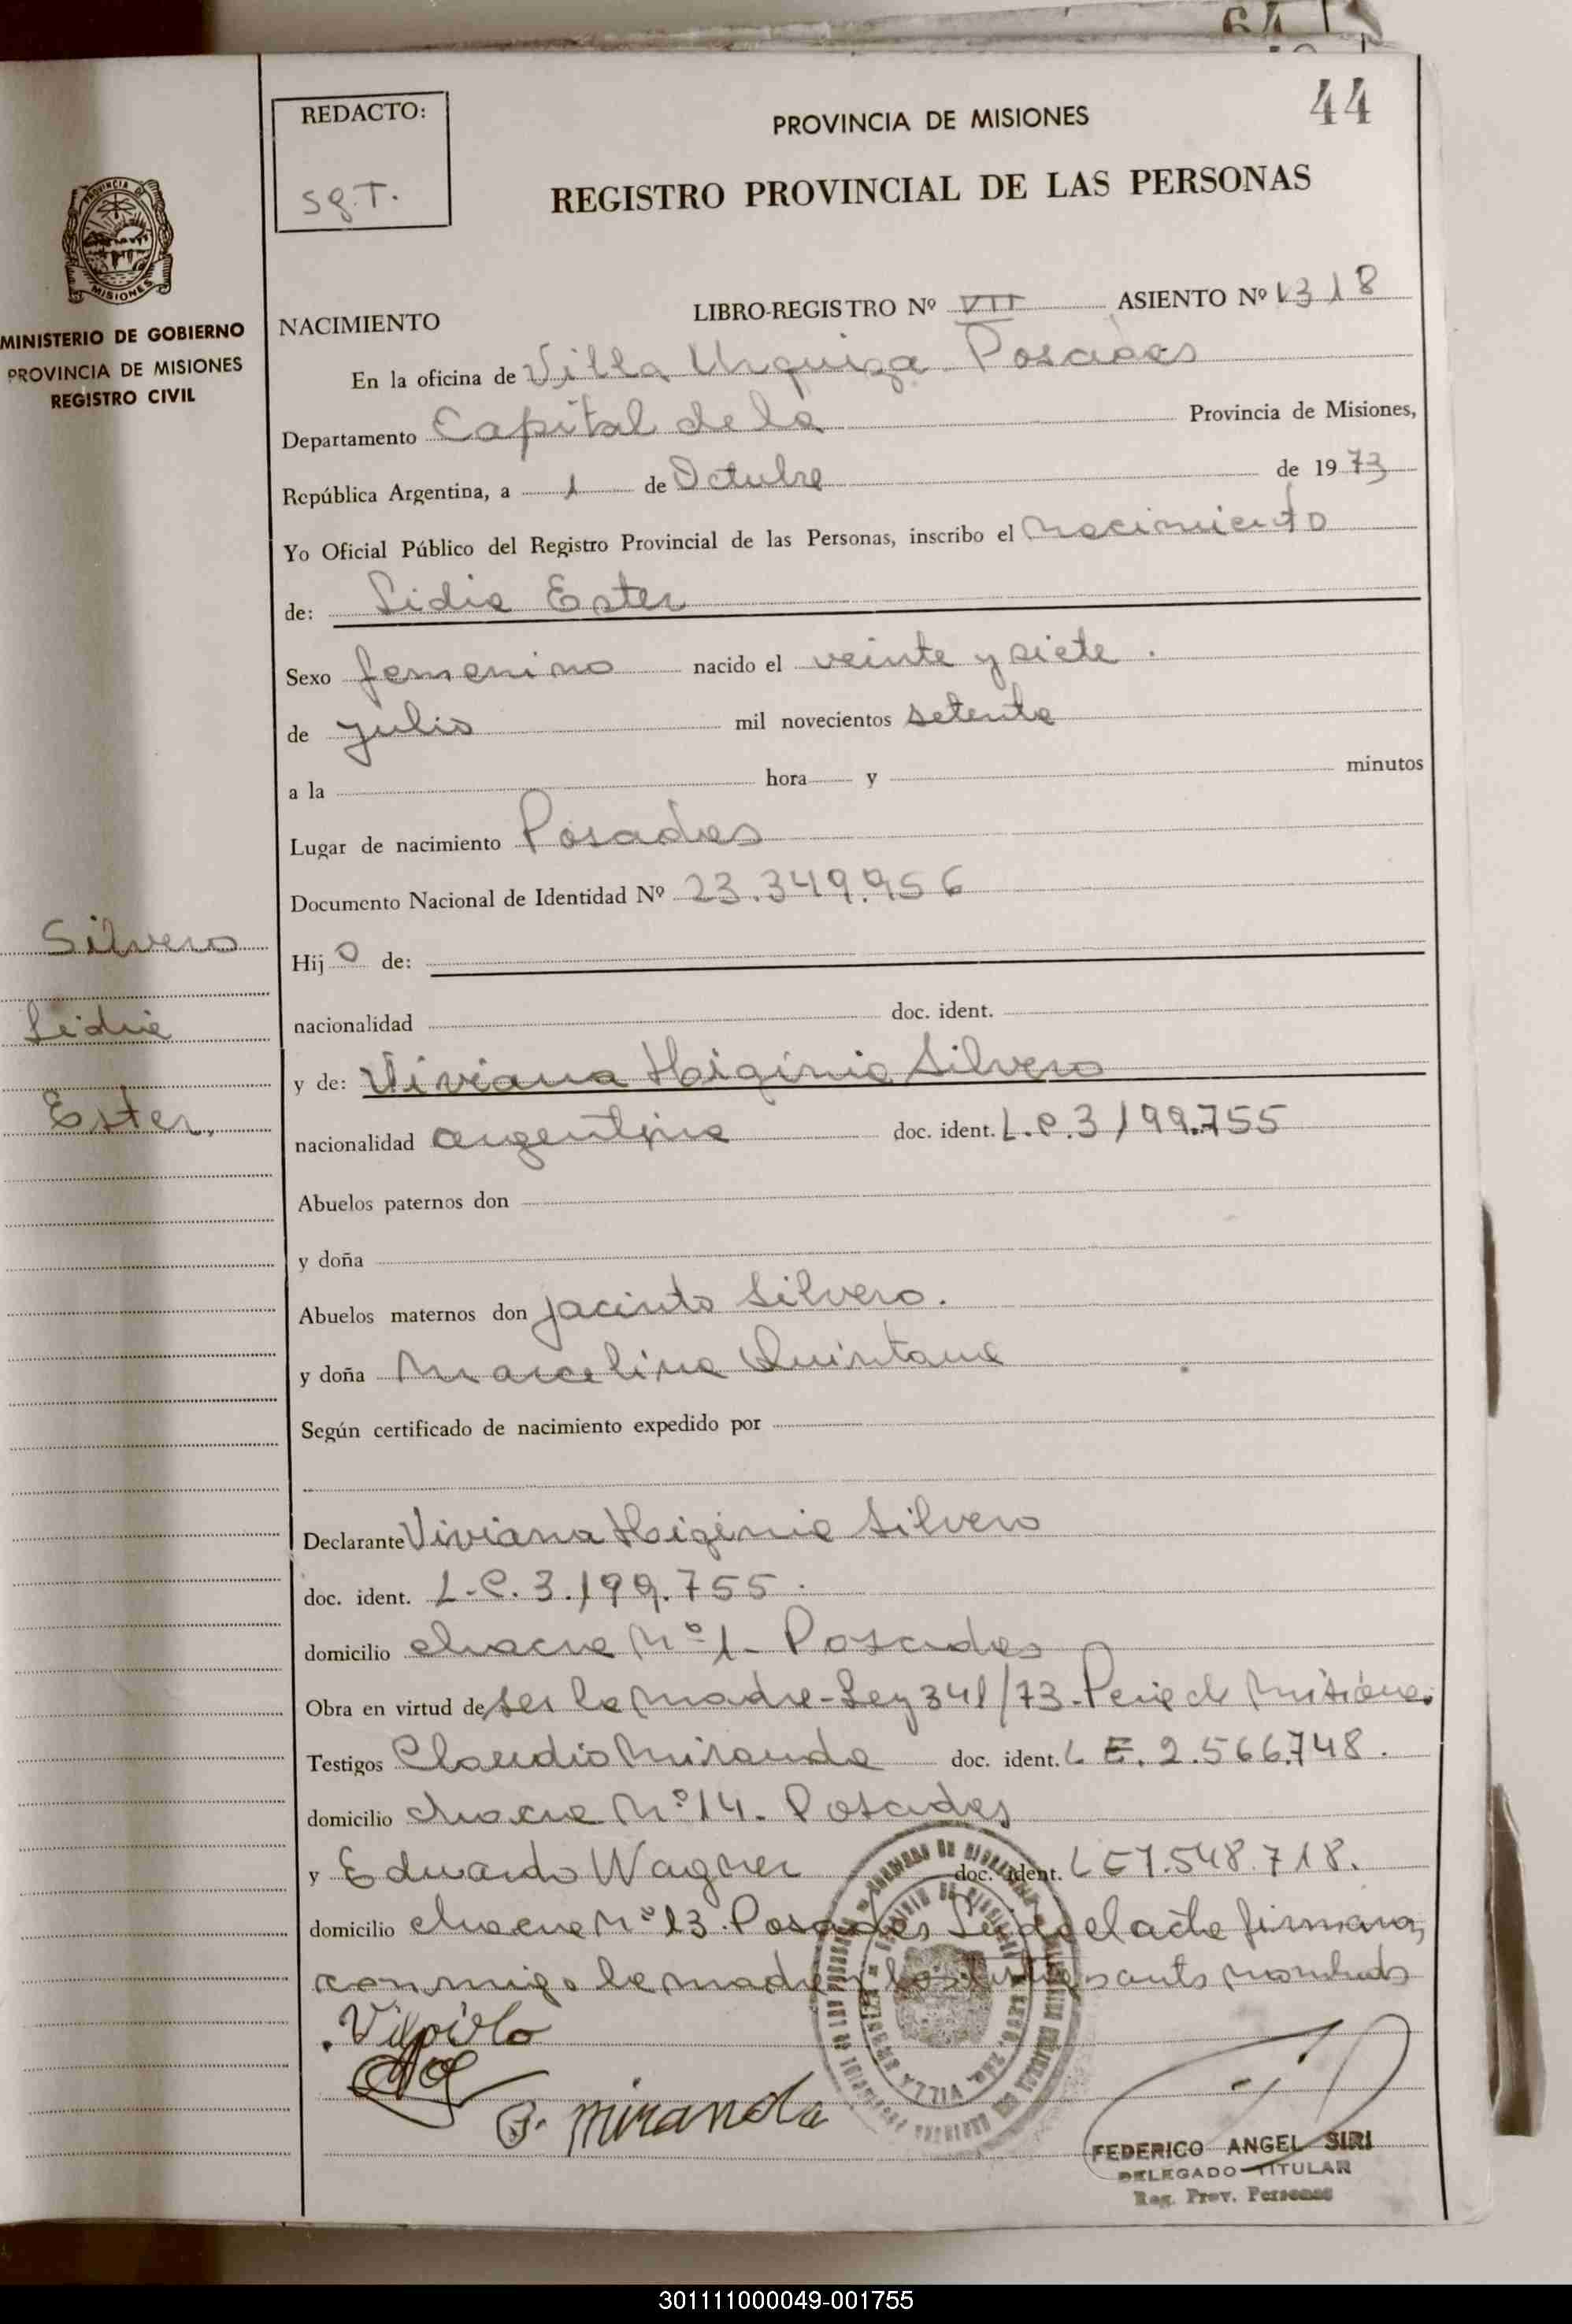 64
44
REDACTO:
Sg.T.
PROVINCIA DE MISIONES
REGISTRO PROVINCIAL DE LAS PERSONAS
MISIONES
MINISTERIO DE GOBIERNO
PROVINCIA DE MISIONES
REGISTRO CIVIL
NACIMIENTO LIBRO-REGISTRO Nº VII ASIENTO Nº 1318
En la oficina de Villa Urquiza Posadas
Departamento Capital de la Provincia de Misiones,
República Argentina, a 1 de Octubre de 1973
Yo Oficial Público del Registro Provincial de las Personas, inscribo el nacimiento
de: Lidia Ester
Sexo femenino nacido el veinte y siete.
de julio mil novecientos setenta
a la hora y minutos
Lugar de nacimiento Posadas
Documento Nacional de Identidad Nº 23.349.956
Silvero
Hij o de:
Lidia
nacionalidad doc. ident.
y de: Viviana Higinia Silvero
Ester.
nacionalidad argentina doc. ident. L.C.3199.755
Abuelos paternos don
y doña
Abuelos maternos don Jacinto Silvero.
y doña Marcelina Quintana
Según certificado de nacimiento expedido por
Declarante Viviana Higinia Silvero
doc. ident. L.C.3.199.755.
domicilio chacra Nº 1- Posadas
Obra en virtud de ser la madre-Ley 341/73-Pcia de Misiones.
Testigos Claudio Miranda doc. ident. L E. 2.566.748.
domicilio chacra Nº 14. Posadas
y Eduardo Wagner doc. ident. L E 7.548.718.
domicilio chacra Nº 13. Posadas Leida el acta firman
conmigo la madre y los testigos antes nombrados
Miranda
FEDERICO ANGEL SIRI
DELEGADO TITULAR
Reg. Prov. Personas
301111000049-001755